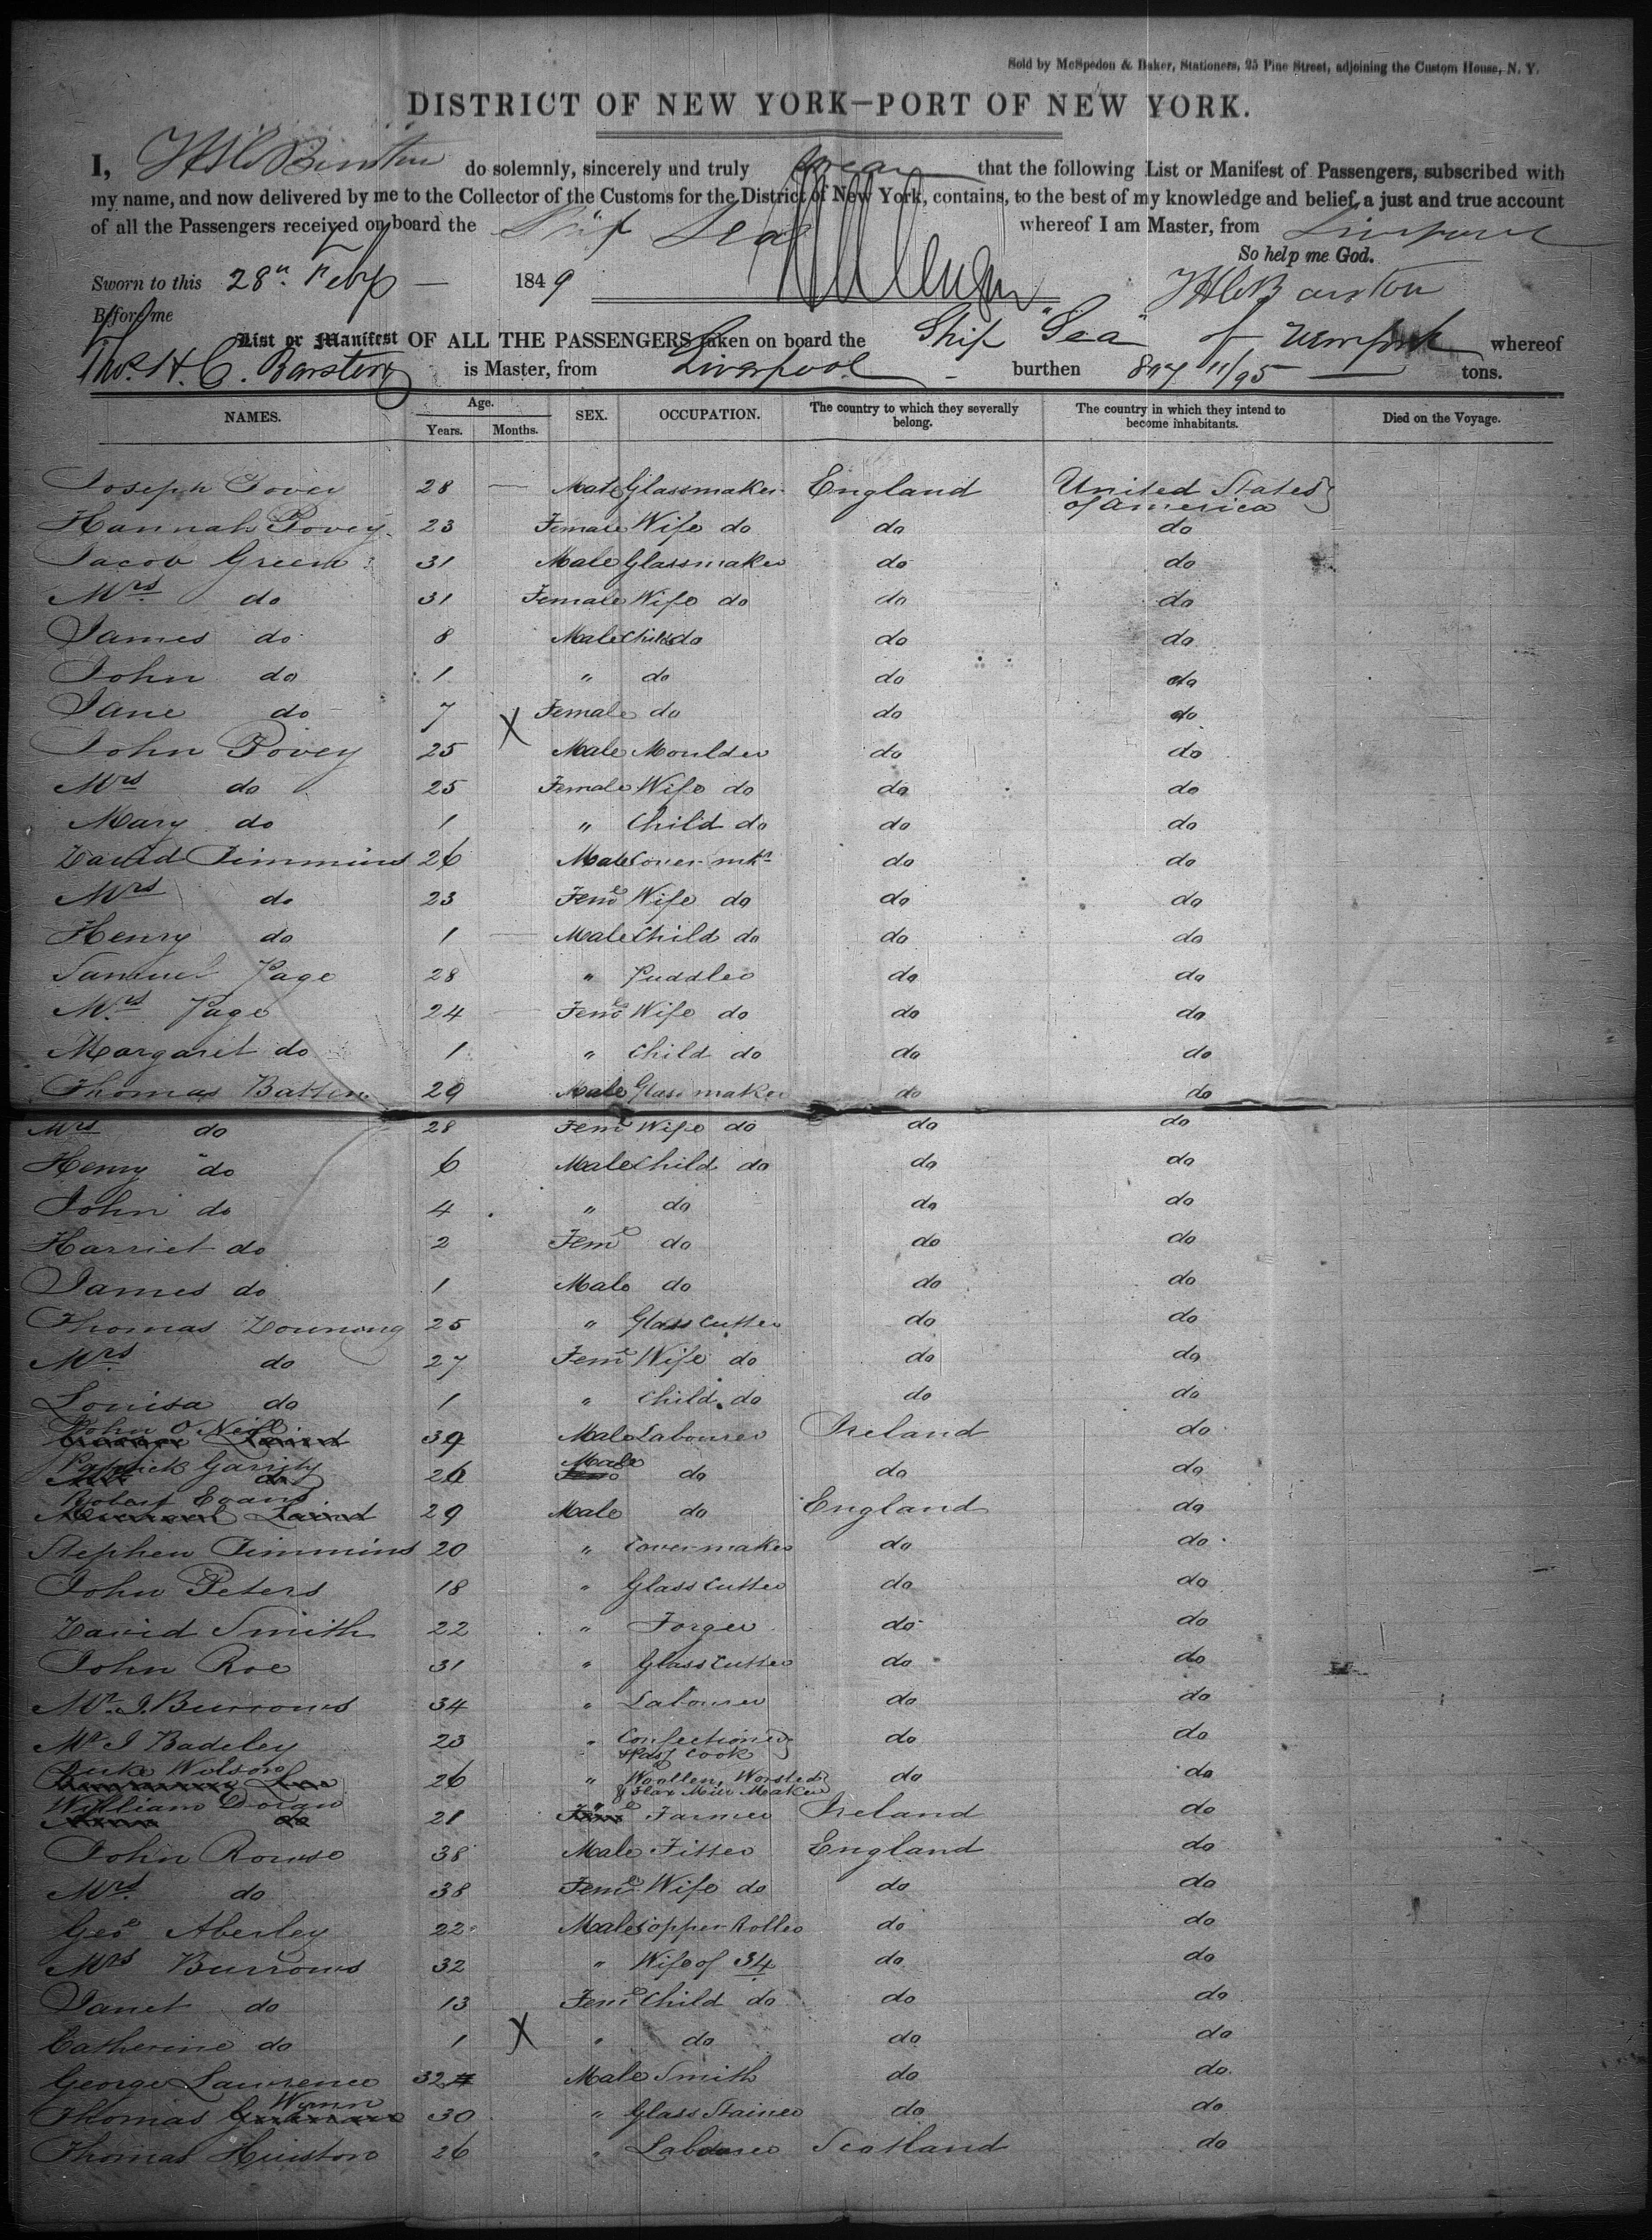 Sold by McSpedon & Baker, Stationers, 25 Pine Street, adjoining the Custom House, N. Y.
DISTRICT OF NEW YORK—PORT OF NEW YORK.
I, do solemnly, sincerely and truly swear that the following List or Manifest of Passengers, subscribed with
my name, and now delivered by me to the Collector of the Customs for the District of New York, contains, to the best of my knowledge and belief, a just and true account
of all the Passengers received on board the Ship Sea whereof I am Master, from Liverpool
So help me God.
Sworn to this 28th Feby 1849
Before me
List or Manifest OF ALL THE PASSENGERS taken on board the Ship "Sea" of whereof
Thos. H. C. Barstow is Master, from Liverpool burthen 807 11/95 tons.
NAMES. Age. Years. Months. SEX. OCCUPATION. The country to which they severally belong. The country in which they intend to become inhabitants. Died on the Voyage.
Joseph Povey 28 — Male Glassmaker England United States of America
Hannah Povey 23 Female Wife do do do
Jacob Green 31 Male Glassmaker do do
Mrs do 31 Female Wife do do do
James do 8 Male Child do do do
John do 1 " do do do
Jane do 7 Female do do do
John Povey 25 X Male Moulder do do
Mrs do 25 Female Wife do do do
Mary do 1 " Child do do do
David Timmins 26 Male do do
Mrs do 23 Feme Wife do do do
Henry do 1 — Male Child do do do
Samuel Page 28 " Puddler do do
Mrs Page 24 Feme Wife do do do
Margaret do 1 " Child do do do
Thomas Batten 29 Male Glass maker do do
Mrs do 28 Feme Wife do do do
Henry do 6 Male Child do do do
John do 4 " do do do
Harriet do 2 Feme do do do
James do 1 Male do do do
Thomas Downing 25 " Glass Cutter do do
Mrs do 27 Feme Wife do do do
Louisa do 1 " Child do do do
John O'Neill 39 Male Labourer Ireland do
Patrick Garrity 26 Male do do do
Robert Evans 29 Male do England do
Stephen Timmins 20 " do do
John Peters 18 " Glass Cutter do do
David Smith 22 " Forger do do
John Roe 31 " Glass Cutter do do
Mr. J. Burrows 34 " Labourer do do
Mr J Badeley 23 " Confectioner & Pasy Cook do do
Luke Wilson 26 " Woollen, Worsted & Flax Mill Maker do do
William Dorgan 21 " Farmer Ireland do
John Rowse 38 Male Fitter England do
Mrs. do 38 Feme Wife do do do
Geo Aberley 22 Male Copper Roller do do
Mrs Burrows 32 " Wife of 34 do do
Janet do 13 Feme Child do do do
Catherine do 1 X " do do do
George Lawrence 32 Male Smith do do
Thomas Wynn 30 " Glass Stainer do do
Thomas Huiston 26 " Labourer Scotland do